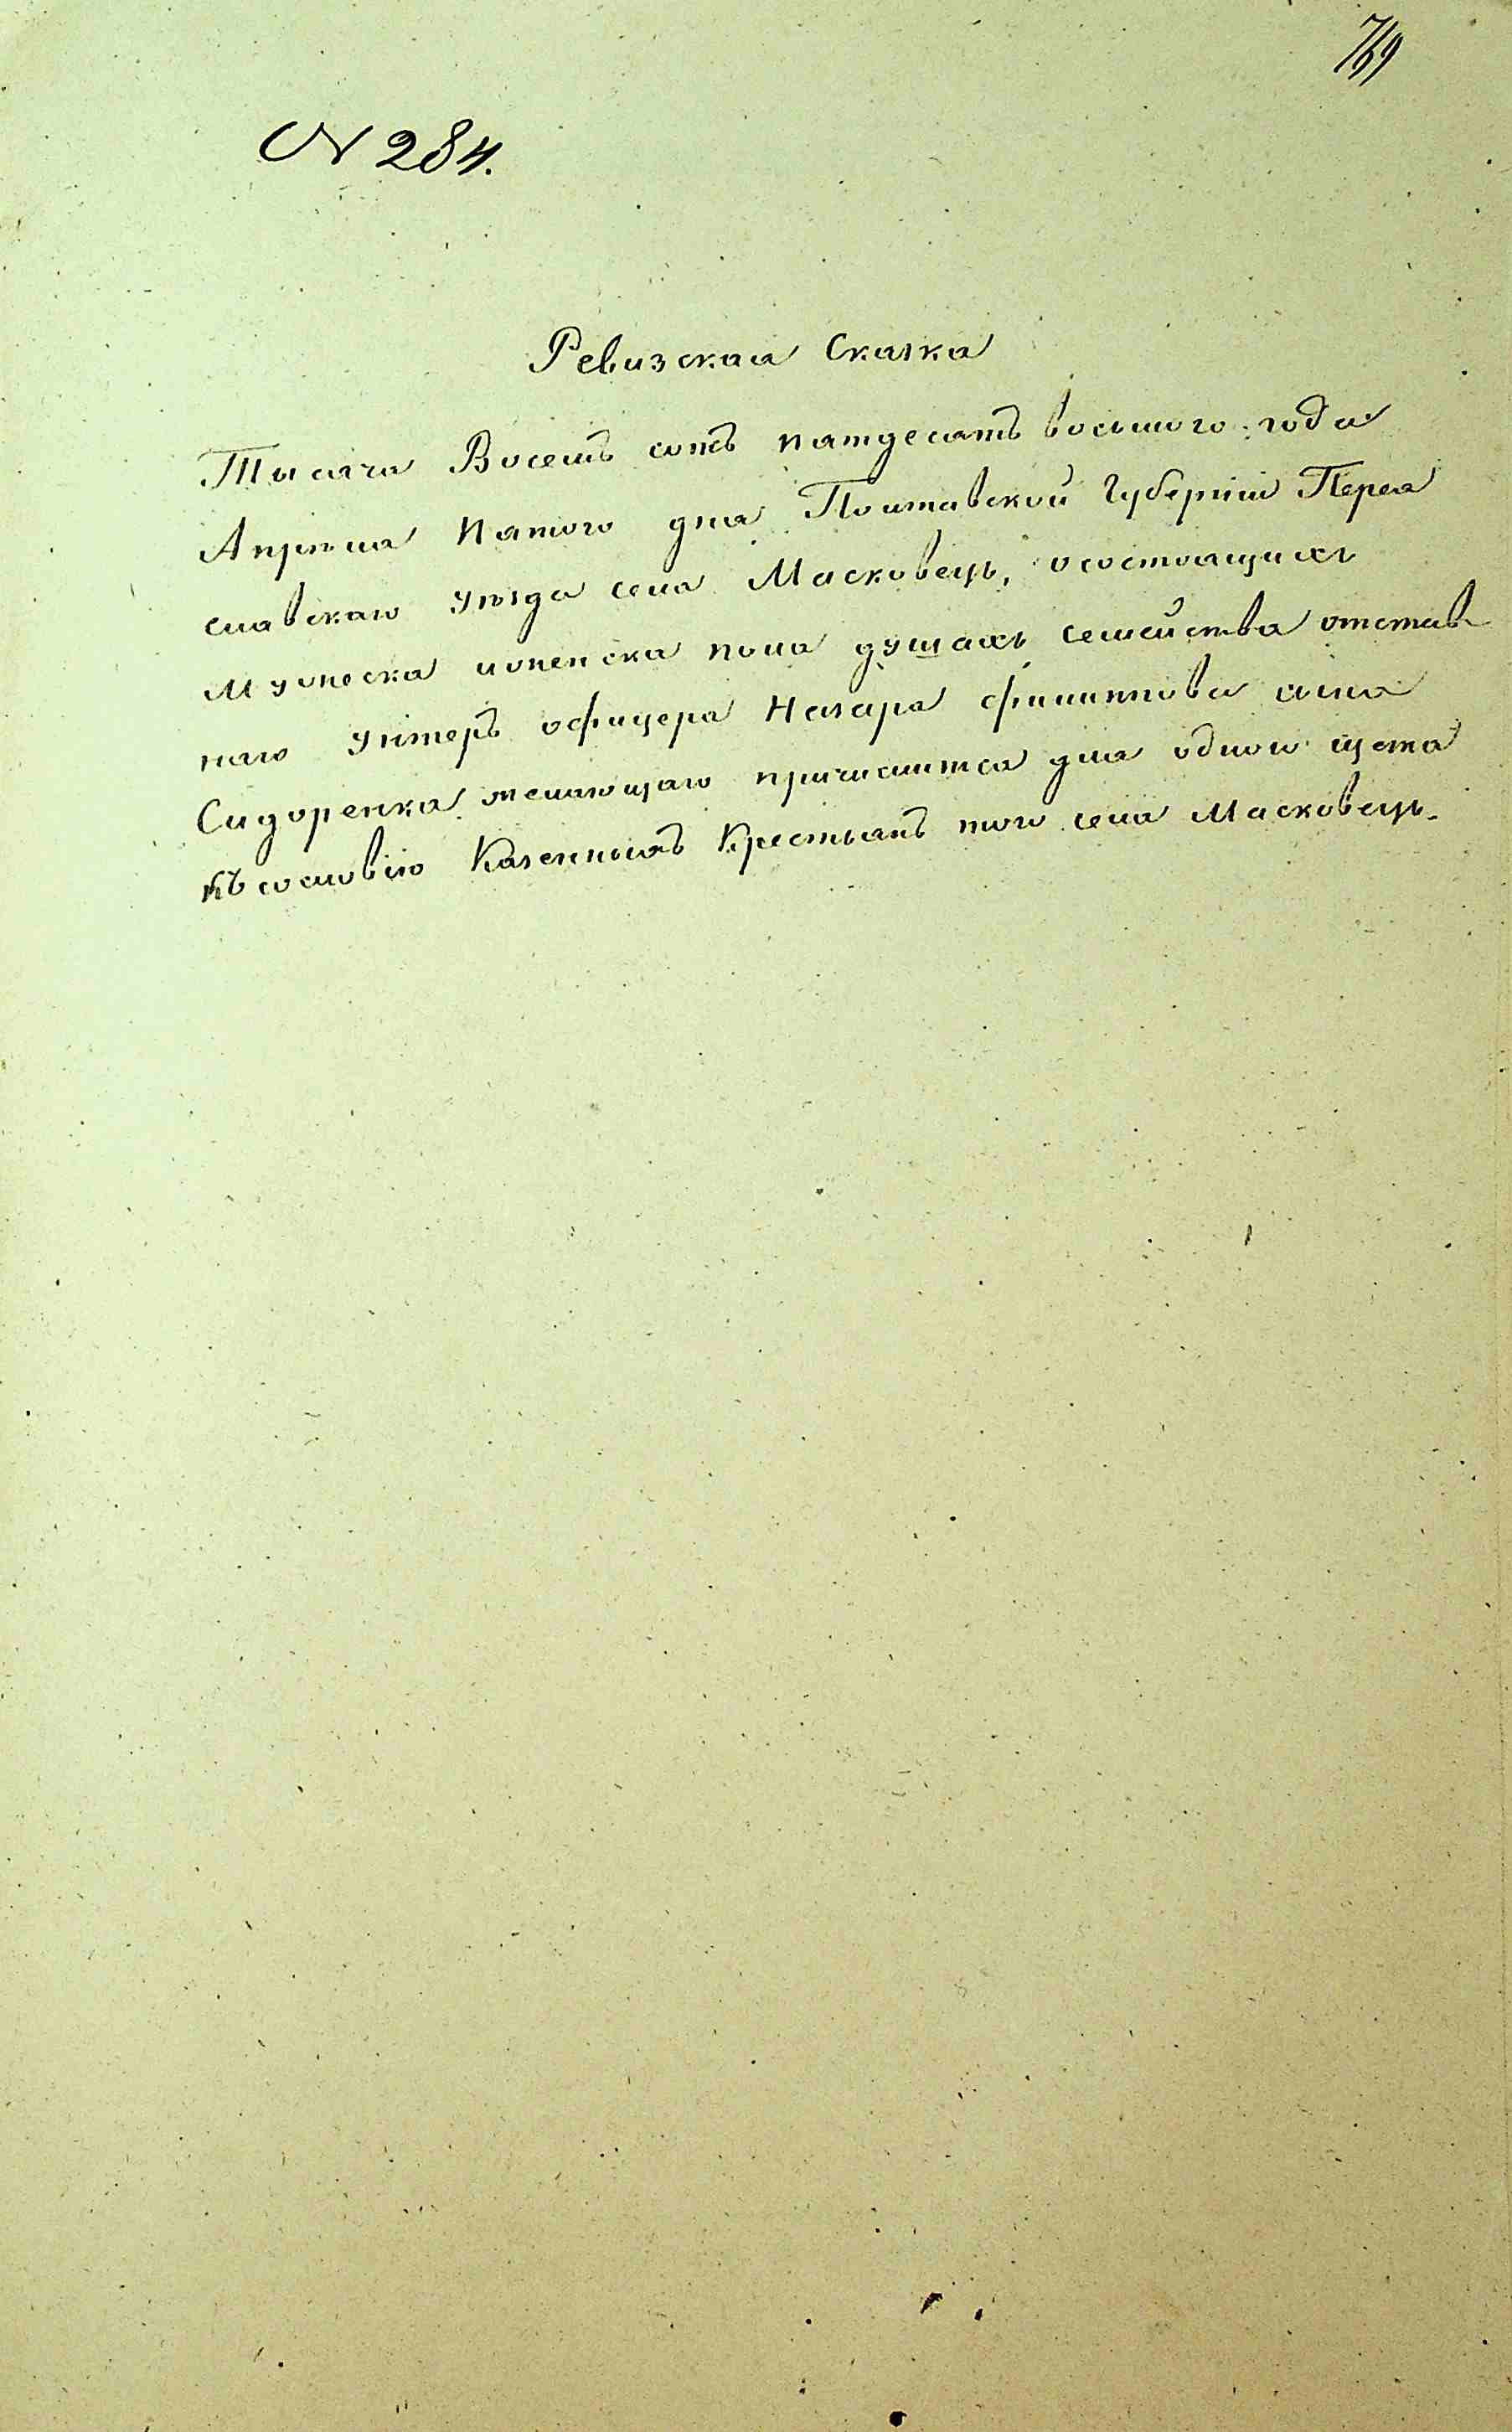 769
№ 284.
Ревизская Сказка
Тысяча Восемь сотъ пятдесятъ восьмого года
Апрѣля Пятого дня Полтавской Губерніи Перея
славскаго уѣзда села Масковецъ, о состоящихъ
мужеска и женска пола душахъ семейства отстав
наго унтеръ офицера Назара филиппова сына
Сидоренка желающаго причислится для одного щета
къ сословію Казенныхъ Крестьянъ того села Масковецъ.